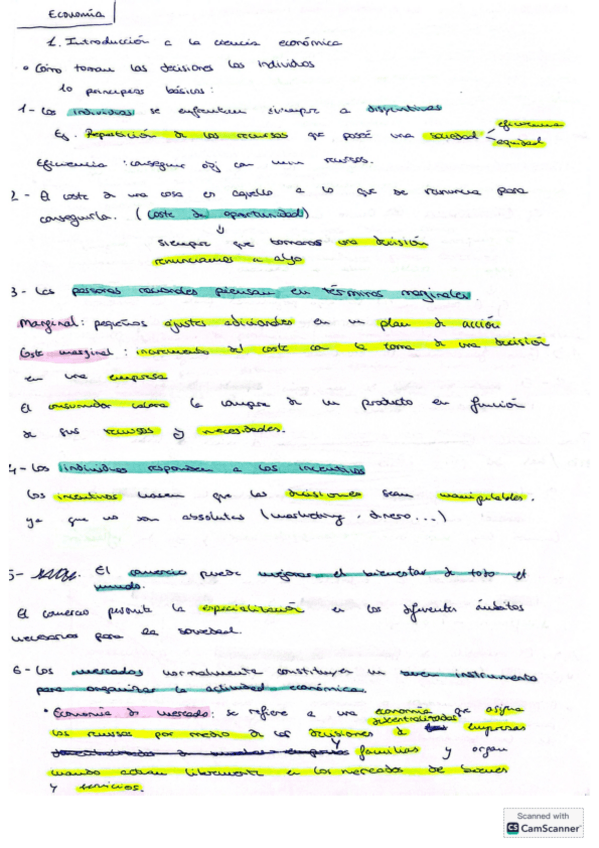 Economía
1. Introducción a la ciencia económica
• Cómo toman las decisiones los individuos
10 principios básicos:
1- Los individuos se enfrentan siempre a disyuntivas
Ej. Repartición de los recursos que posee una sociedad eficiencia
equidad
Eficiencia: conseguir obj con min recursos.
2- El coste de una cosa es aquello a lo que se renuncia para
conseguirla. (Coste de oportunidad)
siempre que tomamos una decisión
renunciamos a algo
3- Las personas racionales piensan en términos marginales.
Marginal: pequeños ajustes adicionales en un plan de acción
Coste marginal: incremento del coste con la toma de una decisión
en una empresa
El consumidor valora la compra de un producto en función
de sus recursos y necesidades.
4- Los individuos responden a los incentivos
Los incentivos hacen que las decisiones sean manipulables.
ya que no son absolutas (marketing, dinero...)
5- El comercio puede mejorar el bienestar de todo el
mundo.
El comercio permite la especialización en los diferentes ámbitos
necesarios para la sociedad.
6- Los mercados normalmente constituyen un buen instrumento
para organizar la actividad económica.
• Economía de mercado: se refiere a una economía que asigna
los recursos por medio de las decisiones descentralizadas de empresas
familias y organ
cuando actúan libremente en los mercados de bienes
y servicios.
Scanned with
CS CamScanner